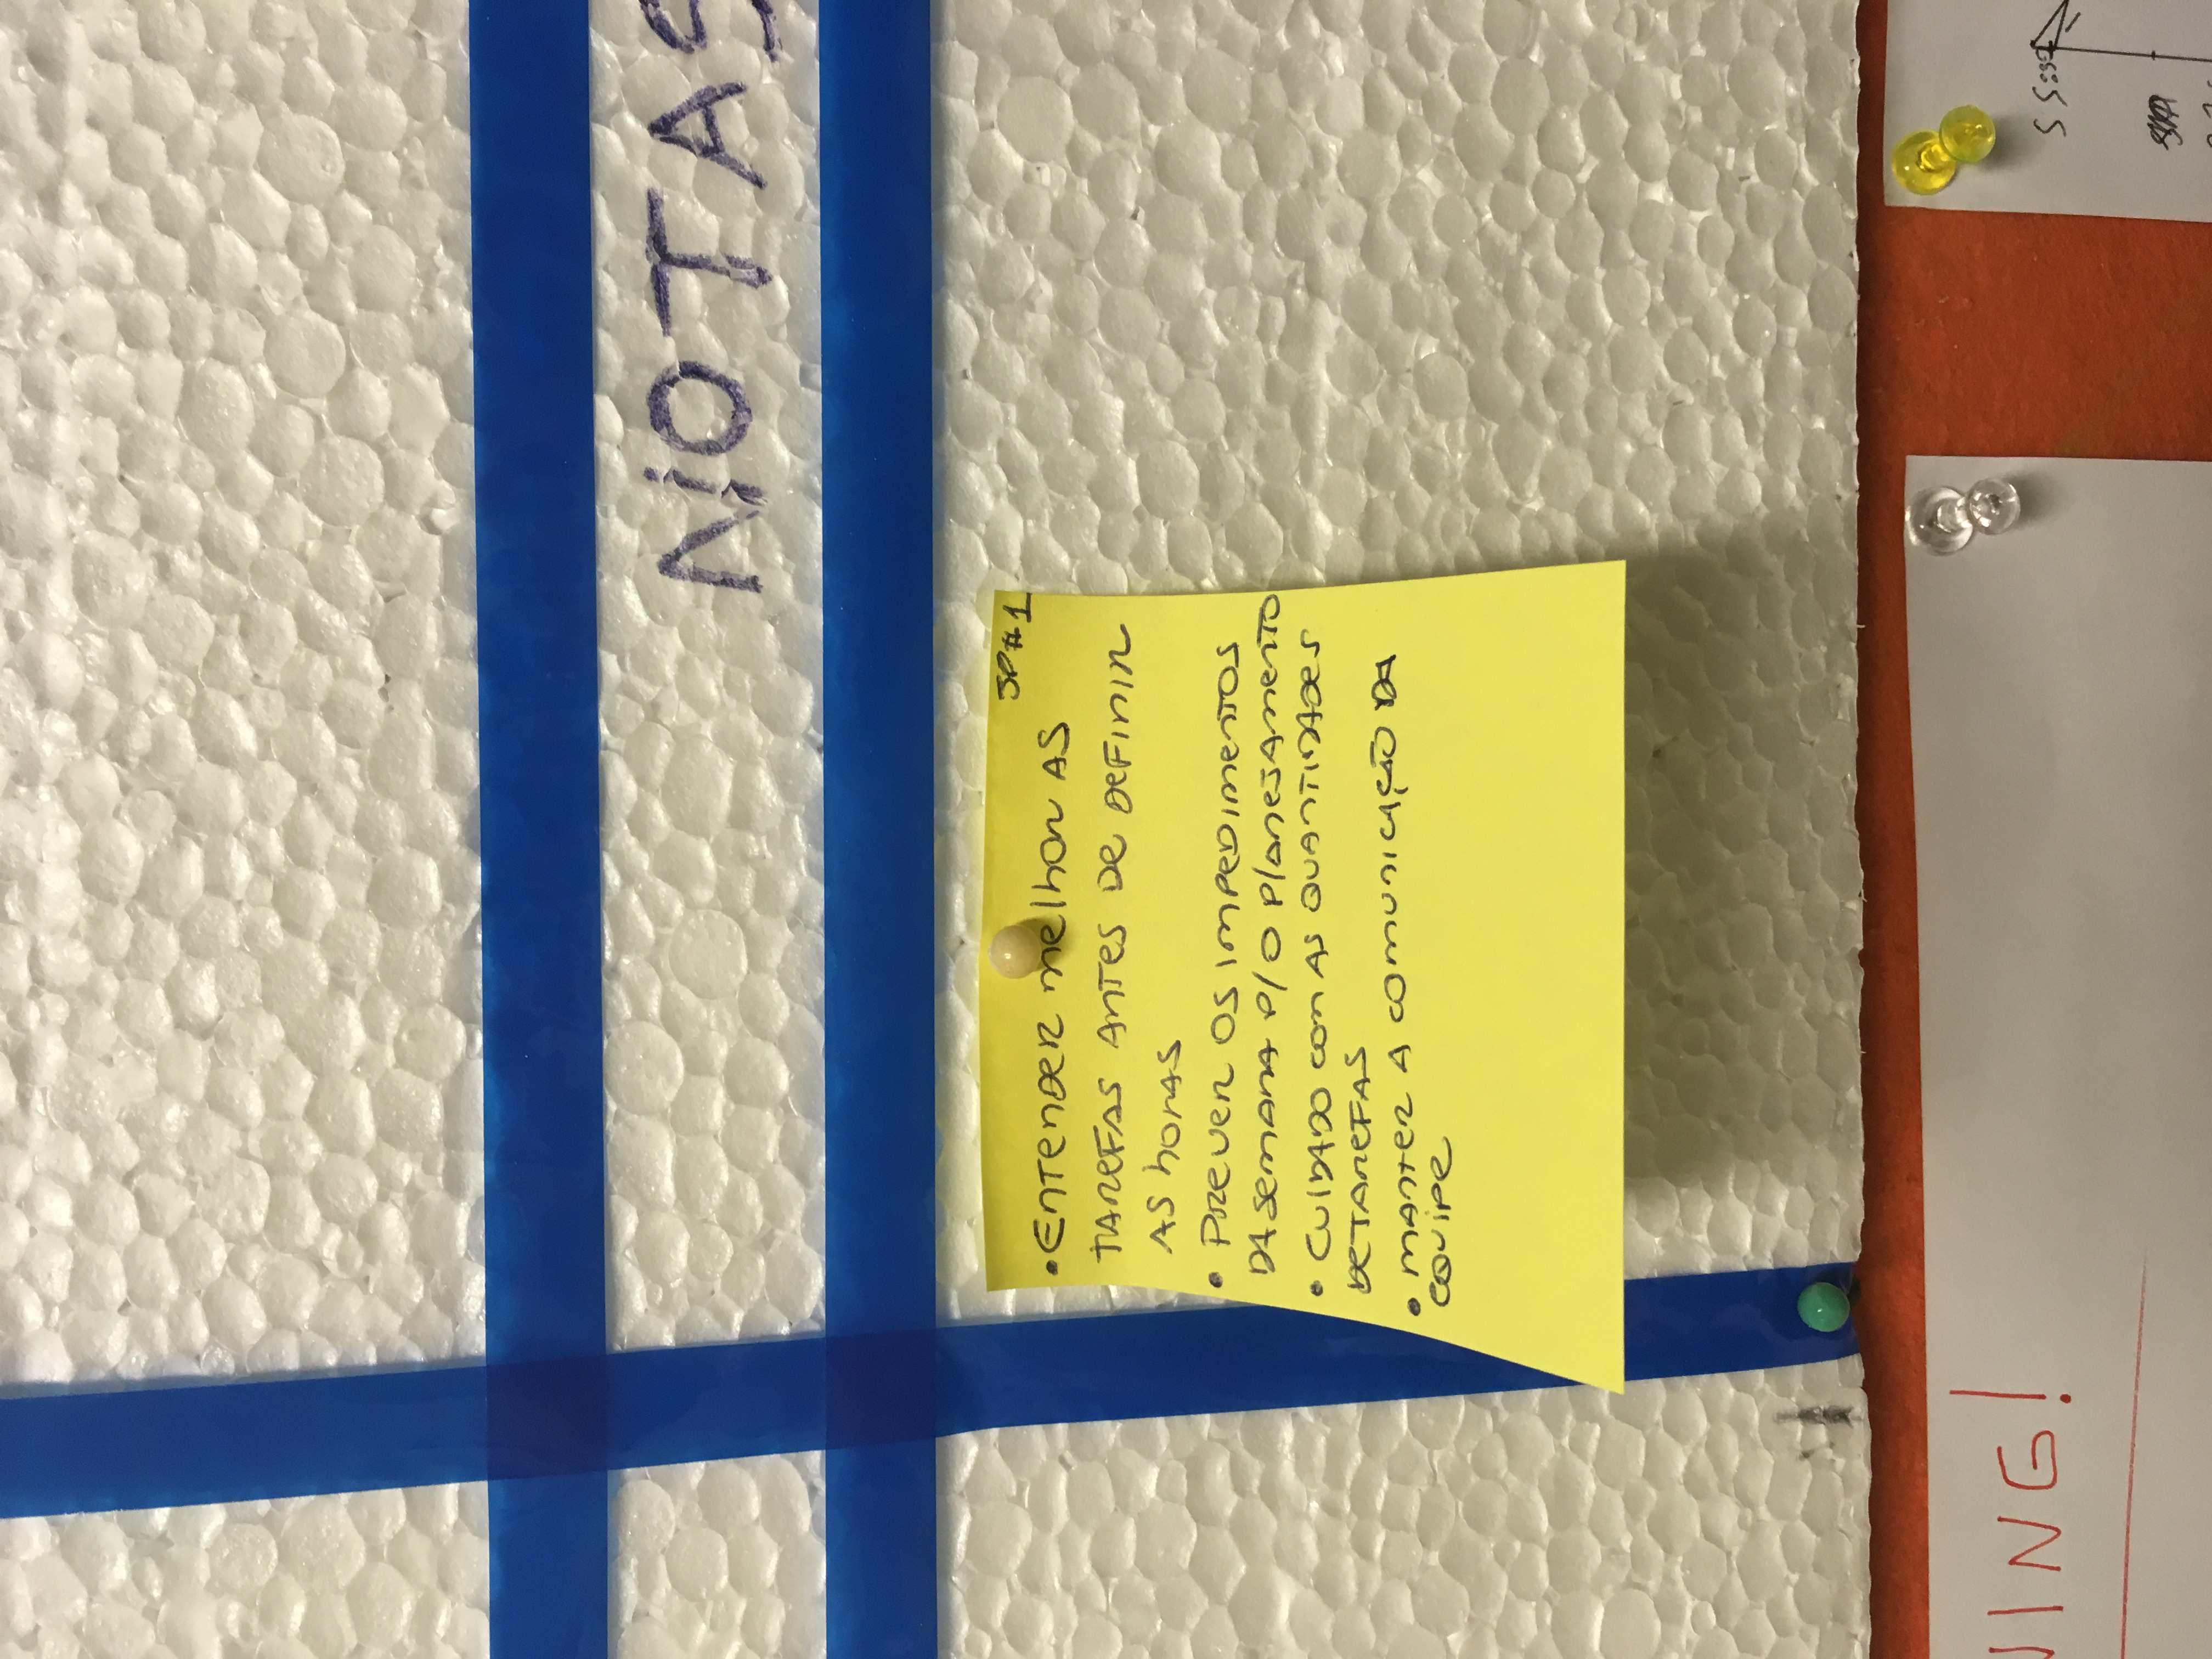 NOTAS
SP#1
• Entender melhor as
tarefas antes de definir
as horas
• Prever os impedimentos
da semana p/ o planejamento
• Cuidado com as quantidades
de tarefas
• manter a comunicação da
equipe
NING!